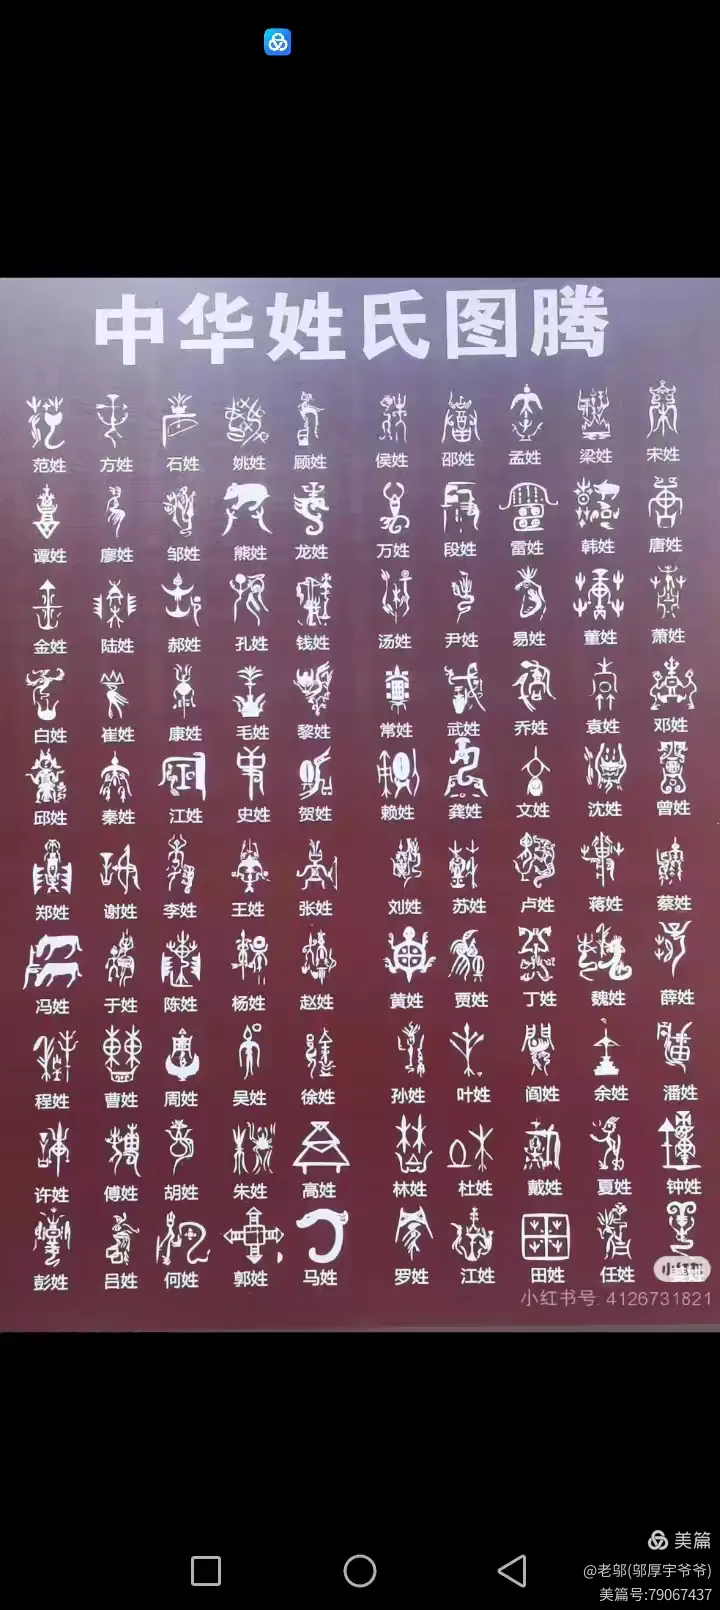 中华姓氏图腾
范姓 方姓 石姓 姚姓 顾姓 侯姓 邵姓 孟姓 梁姓 宋姓
谭姓 廖姓 邹姓 熊姓 龙姓 万姓 段姓 雷姓 韩姓 唐姓
金姓 陆姓 郝姓 孔姓 钱姓 汤姓 尹姓 易姓 董姓 萧姓
白姓 崔姓 康姓 毛姓 黎姓 常姓 武姓 乔姓 袁姓 邓姓
邱姓 秦姓 江姓 史姓 贺姓 赖姓 龚姓 文姓 沈姓 曾姓
郑姓 谢姓 李姓 王姓 张姓 刘姓 苏姓 卢姓 蒋姓 蔡姓
冯姓 于姓 陈姓 杨姓 赵姓 黄姓 贾姓 丁姓 魏姓 薛姓
程姓 曹姓 周姓 吴姓 徐姓 孙姓 叶姓 阎姓 余姓 潘姓
许姓 傅姓 胡姓 朱姓 高姓 林姓 杜姓 戴姓 夏姓 钟姓
彭姓 吕姓 何姓 郭姓 马姓 罗姓 江姓 田姓 任姓
小红书号: 4126731821
美篇
@老邬(邬厚宇爷爷)
美篇号:79067437